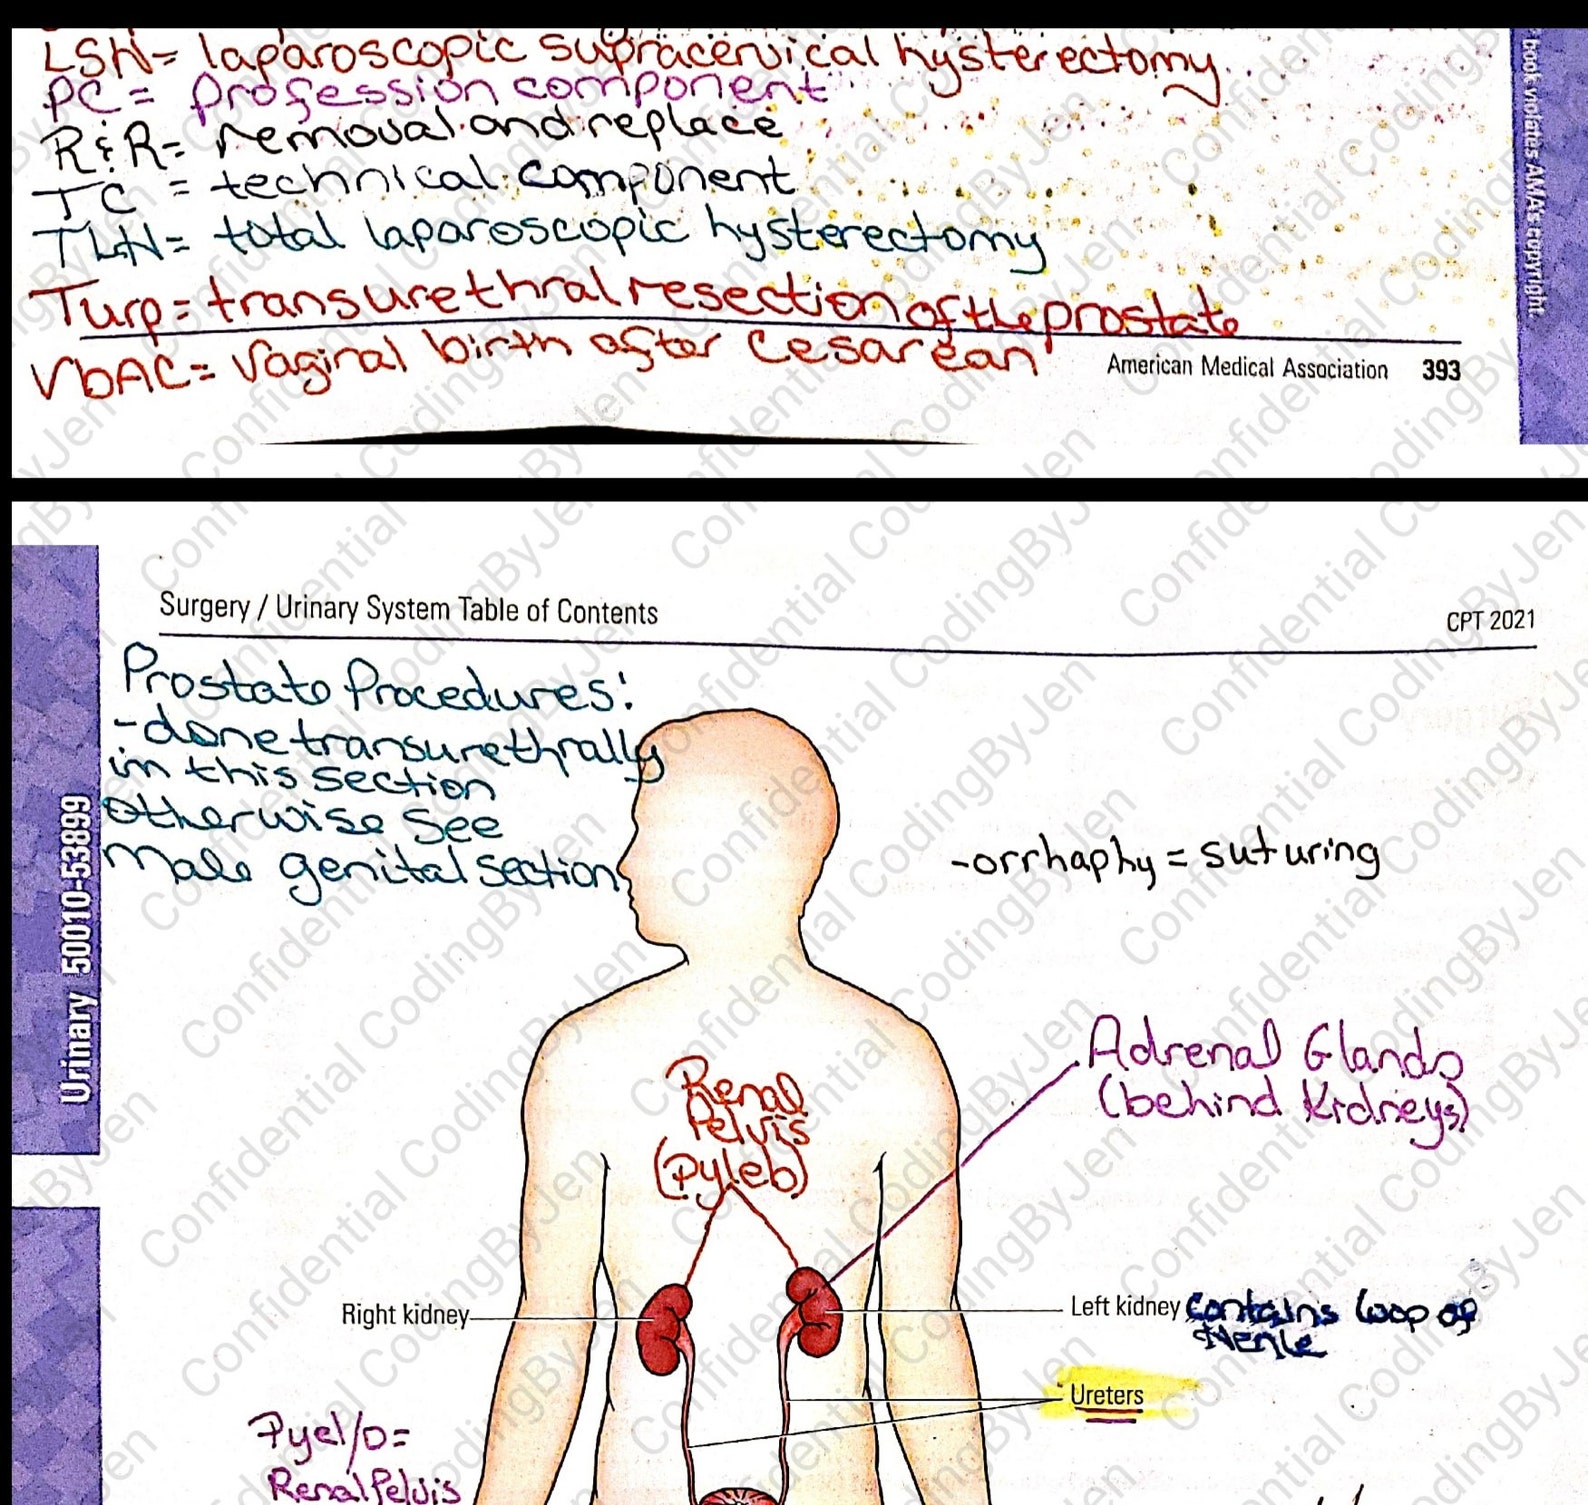 LSH= laparoscopic supracervical hysterectomy
PC= profession component
R&R= removal and replace
TC = technical component
TLH= total laparoscopic hysterectomy
Turp= transurethral resection of the prostate
VbAC= Vaginal birth after Cesarean
American Medical Association 393
book violates AMA's copyright.
Surgery / Urinary System Table of Contents
CPT 2021
Prostate Procedures:
- done transurethrally
in this section
otherwise see
male genital section
Urinary 50010-53899
-orrhaphy = suturing
Adrenal Glands
(behind Kidneys)
Renal
Pelvis
(pyleb)
Right kidney
Left kidney contains loop of
Henle
Ureters
Pyel/o=
Renal Pelvis
Confidential CodingByJen